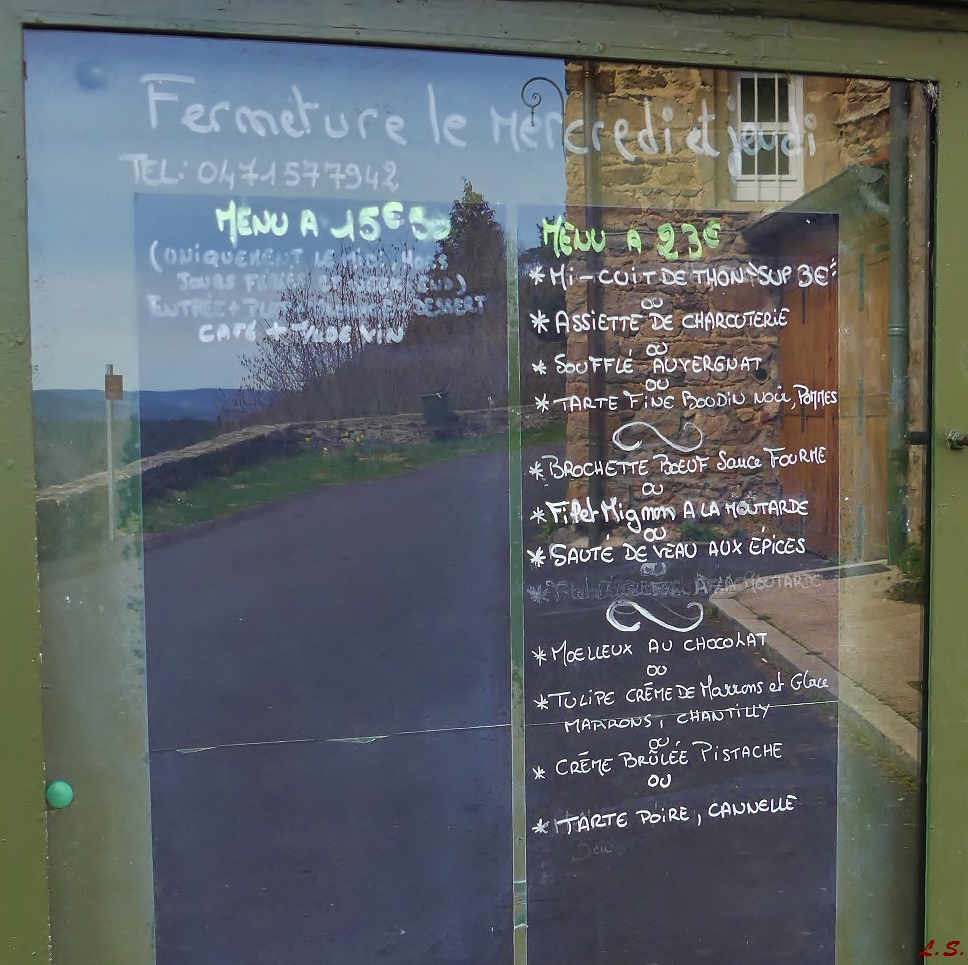 Fermeture le Mercredi et jeudi
TEL: 0471577942
MENU A 15€50
(UNIQUEMENT LE MIDI, HORS
JOURS FÉRIÉS ET WEEK END)
ENTRÉE + DESSERT
CAFÉ + VIN
MENU A 23€
* MI-CUIT DE THON "SUP 3€"
OU
* ASSIETTE DE CHARCUTERIE
OU
* SOUFFLÉ AUVERGNAT
OU
* TARTE FINE BOUDIN NOIR, POMMES
* BROCHETTE BOEUF Sauce FOURME
OU
* Filet Mignon A LA MOUTARDE
OU
* SAUTÉ DE VEAU AUX ÉPICES
OU
* A LA MOUTARDE
* MOELLEUX AU CHOCOLAT
OU
* TULIPE CRÈME DE Marrons et Glace
MARRONS, CHANTILLY
OU
* CRÈME BRÛLÉE PISTACHE
OU
* TARTE POIRE, CANNELLE
L.S.